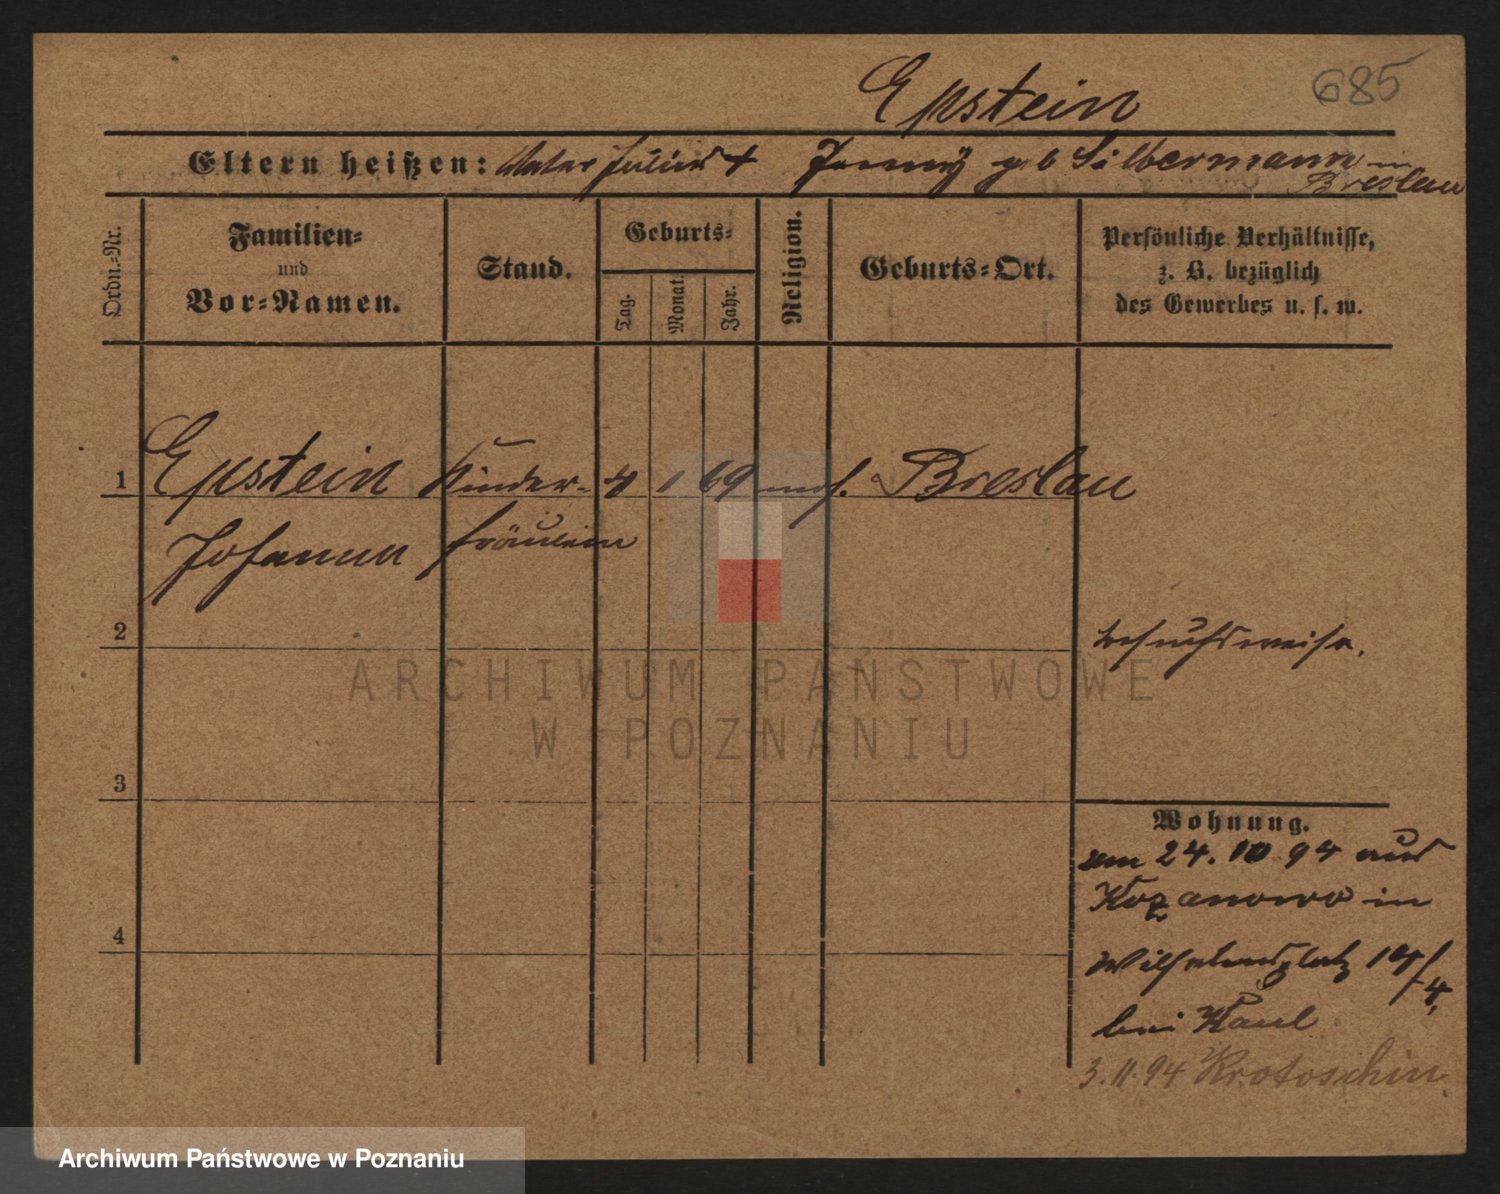 Epstein 685
Eltern heißen: Vater Julius + Jenny geb Silbermann in
Breslau
Ordn.-Nr.
Familien-
und
Vor-Namen.
Stand.
Geburts-
Tag.
Monat.
Jahr.
Religion.
Geburts-Ort.
Persönliche Verhältnisse,
z. B. bezüglich
des Gewerbes u. s. w.
1 Epstein Kinder- 4 1 69 mos. Breslau
Johanna fräulein
2
besuchsweise.
3
Wohnung.
am 24. 10 94 aus
Kozanowo in
4
Wilhelmsplatz
bei Kaul
3. 11. 94 Krotoschin
ARCHIWUM PAŃSTWOWE
W POZNANIU
Archiwum Państwowe w Poznaniu